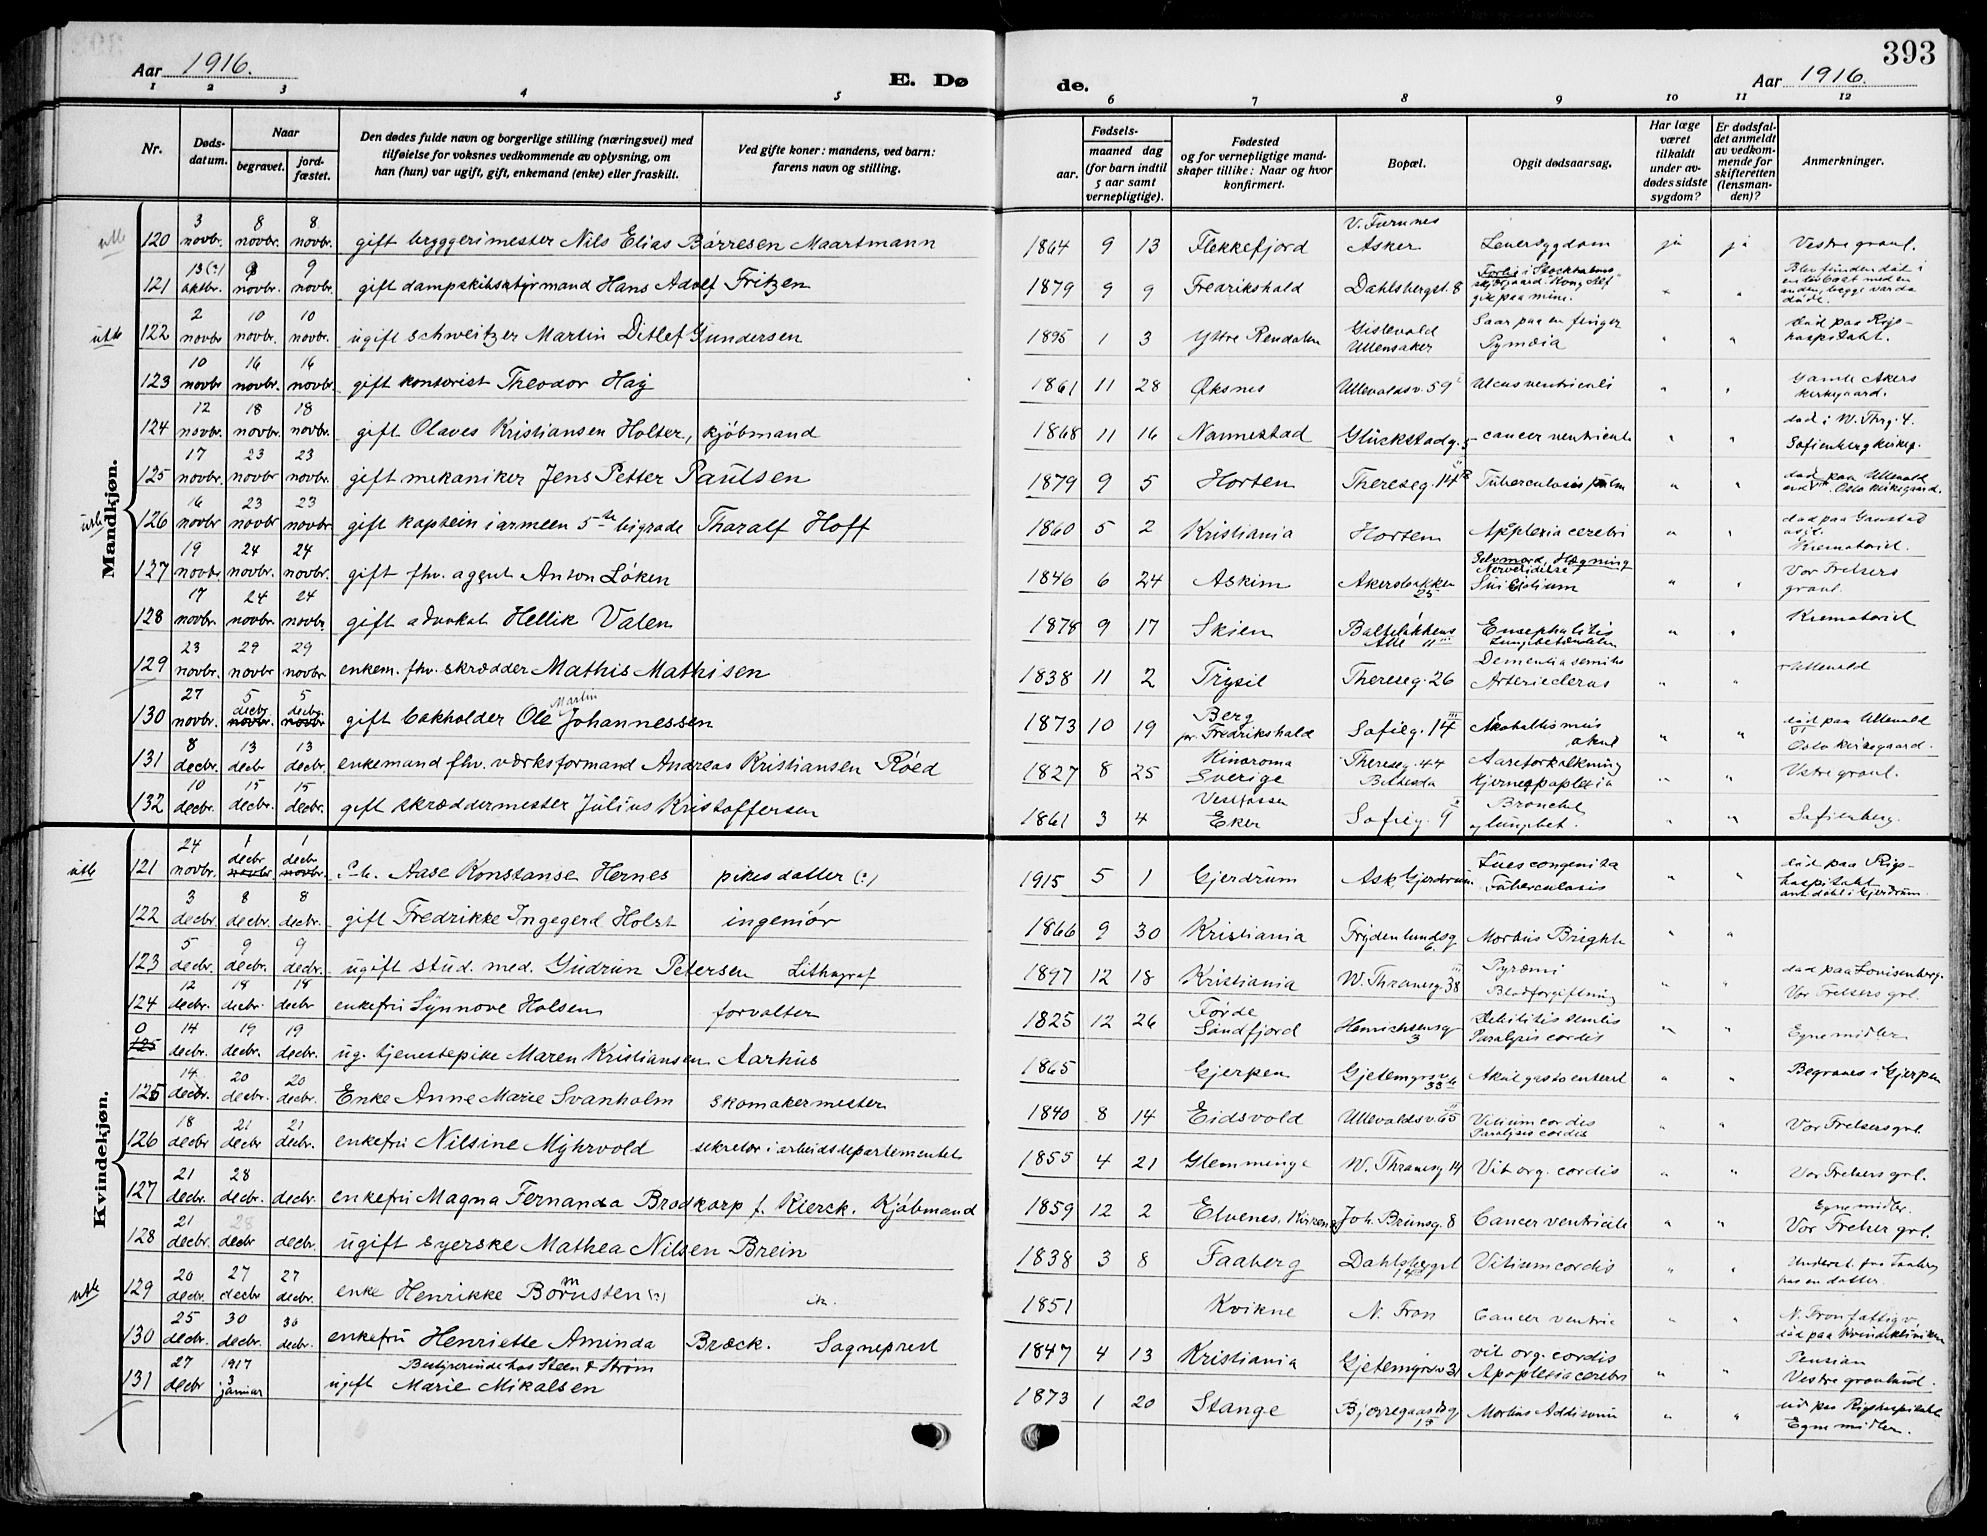 393
Aar 1916.
E. Dø
de.
Aar 1916.
1 2 3 4 5 6 7 8 9 10 11 12
Nr.
Døds-datum.
Naar
begravet.
jord-fæstet.
Den dødes fulde navn og borgerlige stilling (næringsvei) med
tilføielse for voksnes vedkommende av oplysning, om
han (hun) var ugift, gift, enkemand (enke) eller fraskilt.
Ved gifte koner: mandens, ved barn:
farens navn og stilling.
Fødsels-
aar.
maaned dag
(for barn indtil
5 aar samt
vernepligtige).
Fødested
og for vernepligtige mand-
skaper tillike: Naar og hvor
konfirmert.
Bopæl.
Opgit dødsaarsag.
Har læge
været
tilkaldt
under av-
dødes sidste
sygdom?
Er dødsfal-
det anmeldt
av vedkom-
mende for
skifteretten
(lensman-
den)?
Anmerkninger.
Mandkjøn.
120 3 novbr. 8 novbr. 8 novbr. gift bryggerimester Nils Elias Børresen Maartmann 1864 9 13 Flekkefjord Asker Leversygdom ja ja Vestre gravl.
121 13 oktbr. 9 novbr. 9 novbr. gift dampskibsstyrmand Hans Adolf Fritzen 1879 9 9 Fredrikshald Dahlsbergst. 8 Forlis i Stockholms skjærgaard. Kong Alf gik paa mine. " " Blev funden død i en livbaat med en anden, begge var da døde.
122 2 novbr 10 novbr. 10 novbr. ugift schweitzer Martin Ditlef Gundersen 1895 1 3 Yttre Rendalen Gislevold Ullensaker Saar paa en finger Pymæia " " død paa Rigs-hospitalet.
123 10 novbr. 16 novbr. 16 novbr. gift kontorist Theodor Haj 1861 11 28 Øksnes Ullevoldsv. 59 Ulcus ventriculi " " Gamle Akers kirkegaard.
124 12 novbr. 18 novbr. 18 novbr. gift Olaves Kristiansen Holter, kjøbmand 1868 11 16 Nannestad Glückstadg. 5 cancer ventricule " " død i W. Thrg. 4. Sofienberg kirkeg.
125 17 novbr. 23 novbr 23 novbr. gift mekaniker Jens Petter Paulsen 1879 9 5 Horten Thereseg. 14 Tuberculosis pulm " " død paa Ullevold Oslo kirkegaard.
126 16 novbr 23 novbr 23 novbr. gift kaptein i armeen 5te brigade Tharalf Hoff 1860 5 2 Kristiania Horten Applexia cerebri " " død paa Gaustad asyl. Krematoriet.
127 19 novbr 24 novbr. 24 novbr. gift fhv. agent Anton Løken 1846 6 24 Askim Akersbakken 25 Selvmord, Hængning Nervelidelse Suicidium " " Vor Frelsers gravl.
128 17 novbr. 24 novbr. 24 novbr. gift advokat Hellik Valen 1878 9 17 Skien Balteløkkens Alle 11 Encephalitis Lungebetændelse " " Krematoriet
129 23 novbr. 29 novbr. 29 novbr. enkem. fhv. skrædder Mathis Mathisen 1838 11 2 Trysil Thereseg. 26 Dementia senilis Arterieclerus " " Ullevold
130 27 novbr. 5 decbr. novbr. 5 decbr. novbr gift bokholder Ole Martin Johannessen 1873 10 19 Berg pr. Fredrikshald Sofieg. 14 Akoholismus akut " " død paa Ullevold Oslo kirkegaard.
131 8 decbr. 13 decbr 13 decbr. enkemand fhv. værksformand Andreas Kristiansen Røed 1827 8 25 Sverige Thereseg. 44 Bethesda Aareforkalkning Hjerneapoplexia " " Vestre gravl.
132 10 decbr. 15 decbr. 15 decbr. gift skræddermestер Julius Kristoffersen 1861 3 4 Vestfossen Eker Sofieg. 9 Bronchit og lungebet. " " Sofienberg.
Kvindekjøn.
121 24 novbr. 1 decbr novbr 1 decbr novbr. Aase Konstanse Hernes pikes datter (:) 1915 5 1 Gjerdrum Ask Gjerdrum Lues congenita Tuberculosis " " død paa Rigs-hospitalet i Gjerdrum.
122 3 decbr. 8 decbr. 8 decbr. gift Fredrikke Ingegerd Holst ingeniør 1866 9 30 Kristiania Frydenlundsg 6. Morbus Brighti " "
123 5 decbr. 9 decbr. 9 decbr. ugift stud. med. Gudrun Petersen Lithograf 1897 12 18 Kristiania W. Thranesg. 38 Pyæmi Blodforgiftning " " død paa Lovisenberg. Vor Frelsers grl.
124 12 decbr. 18 decbr. 18 decbr enkefru Synnøve Holsen forvalter 1825 12 26 Førde Søndfjord Henrichsensg 3 Debilitis senilis Paralysis cordis " " Egne midler.
0 125 14 decbr. 19 decbr. 19 decbr. ug. tjenestepike Maren Kristiansen Aarhus 1865 Gjerpen Gjetemyrsv. Akut gastoenterit " " Begraves i Gjerpen
125 14 decbr. 20 decbr. 20 decbr. Enke Anne Marie Svanholm skomakermester 1840 8 14 Eidsvold Ullevoldsv. 65 Vitium cordis Paralysis cordis " " Vor Frelsers grl.
126 18 decbr 21 decbr 21 decbr. enkefru Nilsine Myhrvold sekretær i arbeidsdepartementet 1855 4 21 Glemminge W. Thranesg 14 Vit org. cordis " " Vor Frelsers grl.
127 21 decbr. 28 decbr. decbr. enkefru Magna Fernanda Brodkorp f. Klerck. Kjøbmand 1859 12 2 Elvenes, Kirkenes Joh. Brunsg. 8 Cancer ventricule " " Egne midler. Vor Frelser grl.
128 21 decbr. 28 decbr decbr. ugift syerske Mathea Nilsen Brein 1838 3 8 Faaberg Dahlsbergst 14 Vitium cordis " " Underst. fra Faaberg hos en datter.
129 20 decbr. 27 decbr 27 decbr. enke Henrikke Bornsten (:) 1851 Kvikne N. Fron Cancer ventric " " N. Fron fattigv. død paa Kvindeklinikken
130 25 decbr. 30 decbr. 30 decbr. enkefru Henriette Aminda Bræck. Sogneprest 1847 4 13 Kristiania Gjetemyrsv. 31 vit org. cordis Apoplexia cerebri " " Pension Vestre gravlund.
131 27 decbr 1917 3 januar ugift Bestyrerinde hos Steen & Strøm Marie Mikalsen 1873 1 20 Stange Bjerregaardsg 15 Morbus Addisonii " " død paa Rigshospitalet Egne midler.